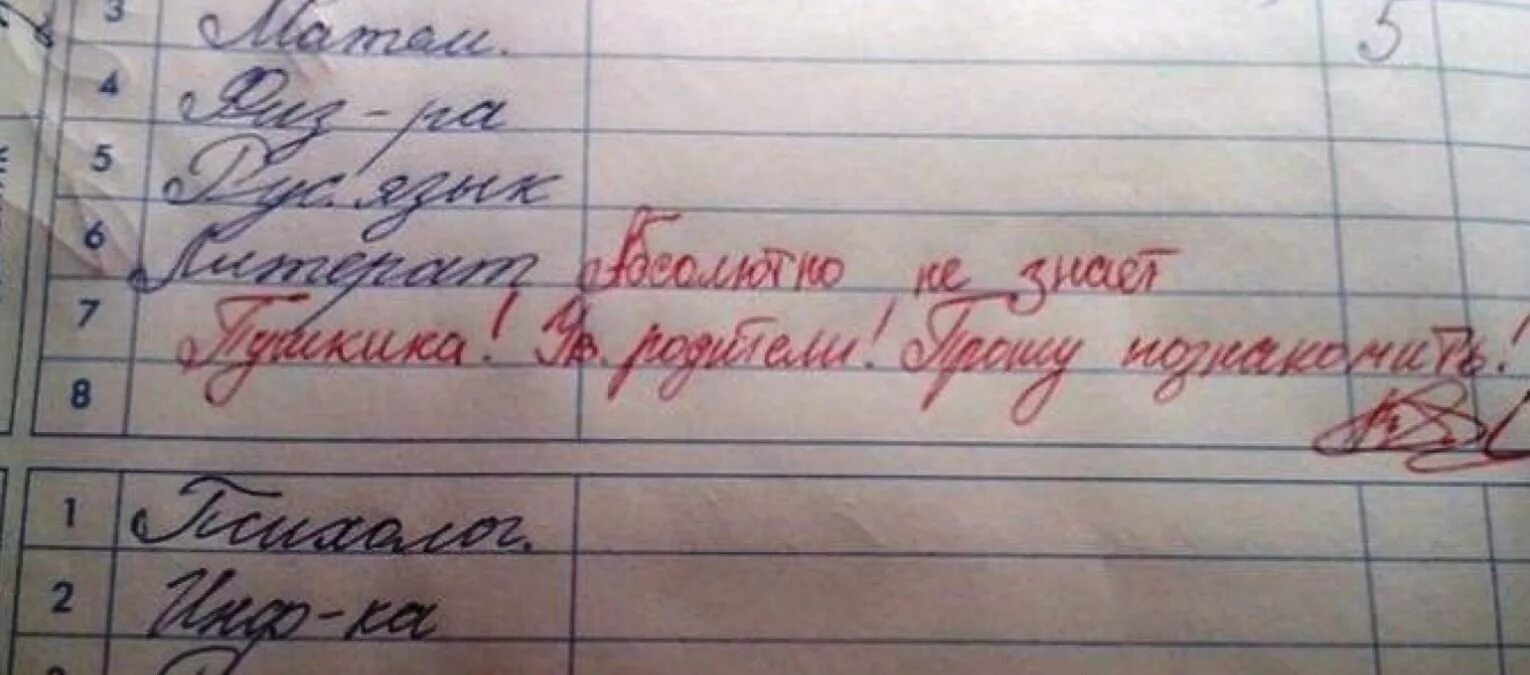 3 Матем. 5
4 Физ-ра
5 Рус. язык
6 Литерат Абсолютно не знает
7 Пушкина! Ув. родители! Прошу познакомить!
8
1 Психолог.
2 Инф-ка